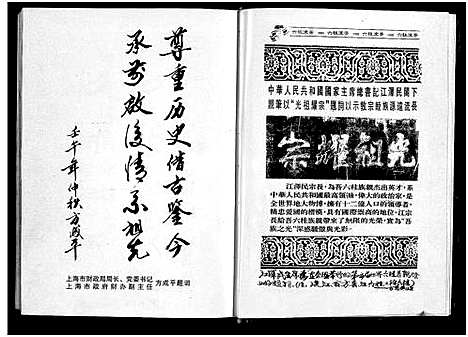 尊重历史借古鉴今
承前启後情系祖先
壬午年仲秋方成平
上海市财政局局长、党委书记
上海市政府财办副主任
方成平题词
六桂宗亭
六桂宗亭
六桂宗亭
中華人民共和國國家主席總書記江澤民閣下
親筆以“光祖耀宗”題詞以示教宗敍族源遠流長
宗耀祖光
江澤民宗長，為吾六桂族親杰出英才，系
中華人民共和國最高領袖，偉大的政治家，是
全世界地大物博，擁有十二億人口的領導者，
精忠愛國的楷模，具有國際崇高的地位，江宗
長給吾六桂族親帶來了無限的光榮，實為“吾
族之光”深感驕傲與光彩。